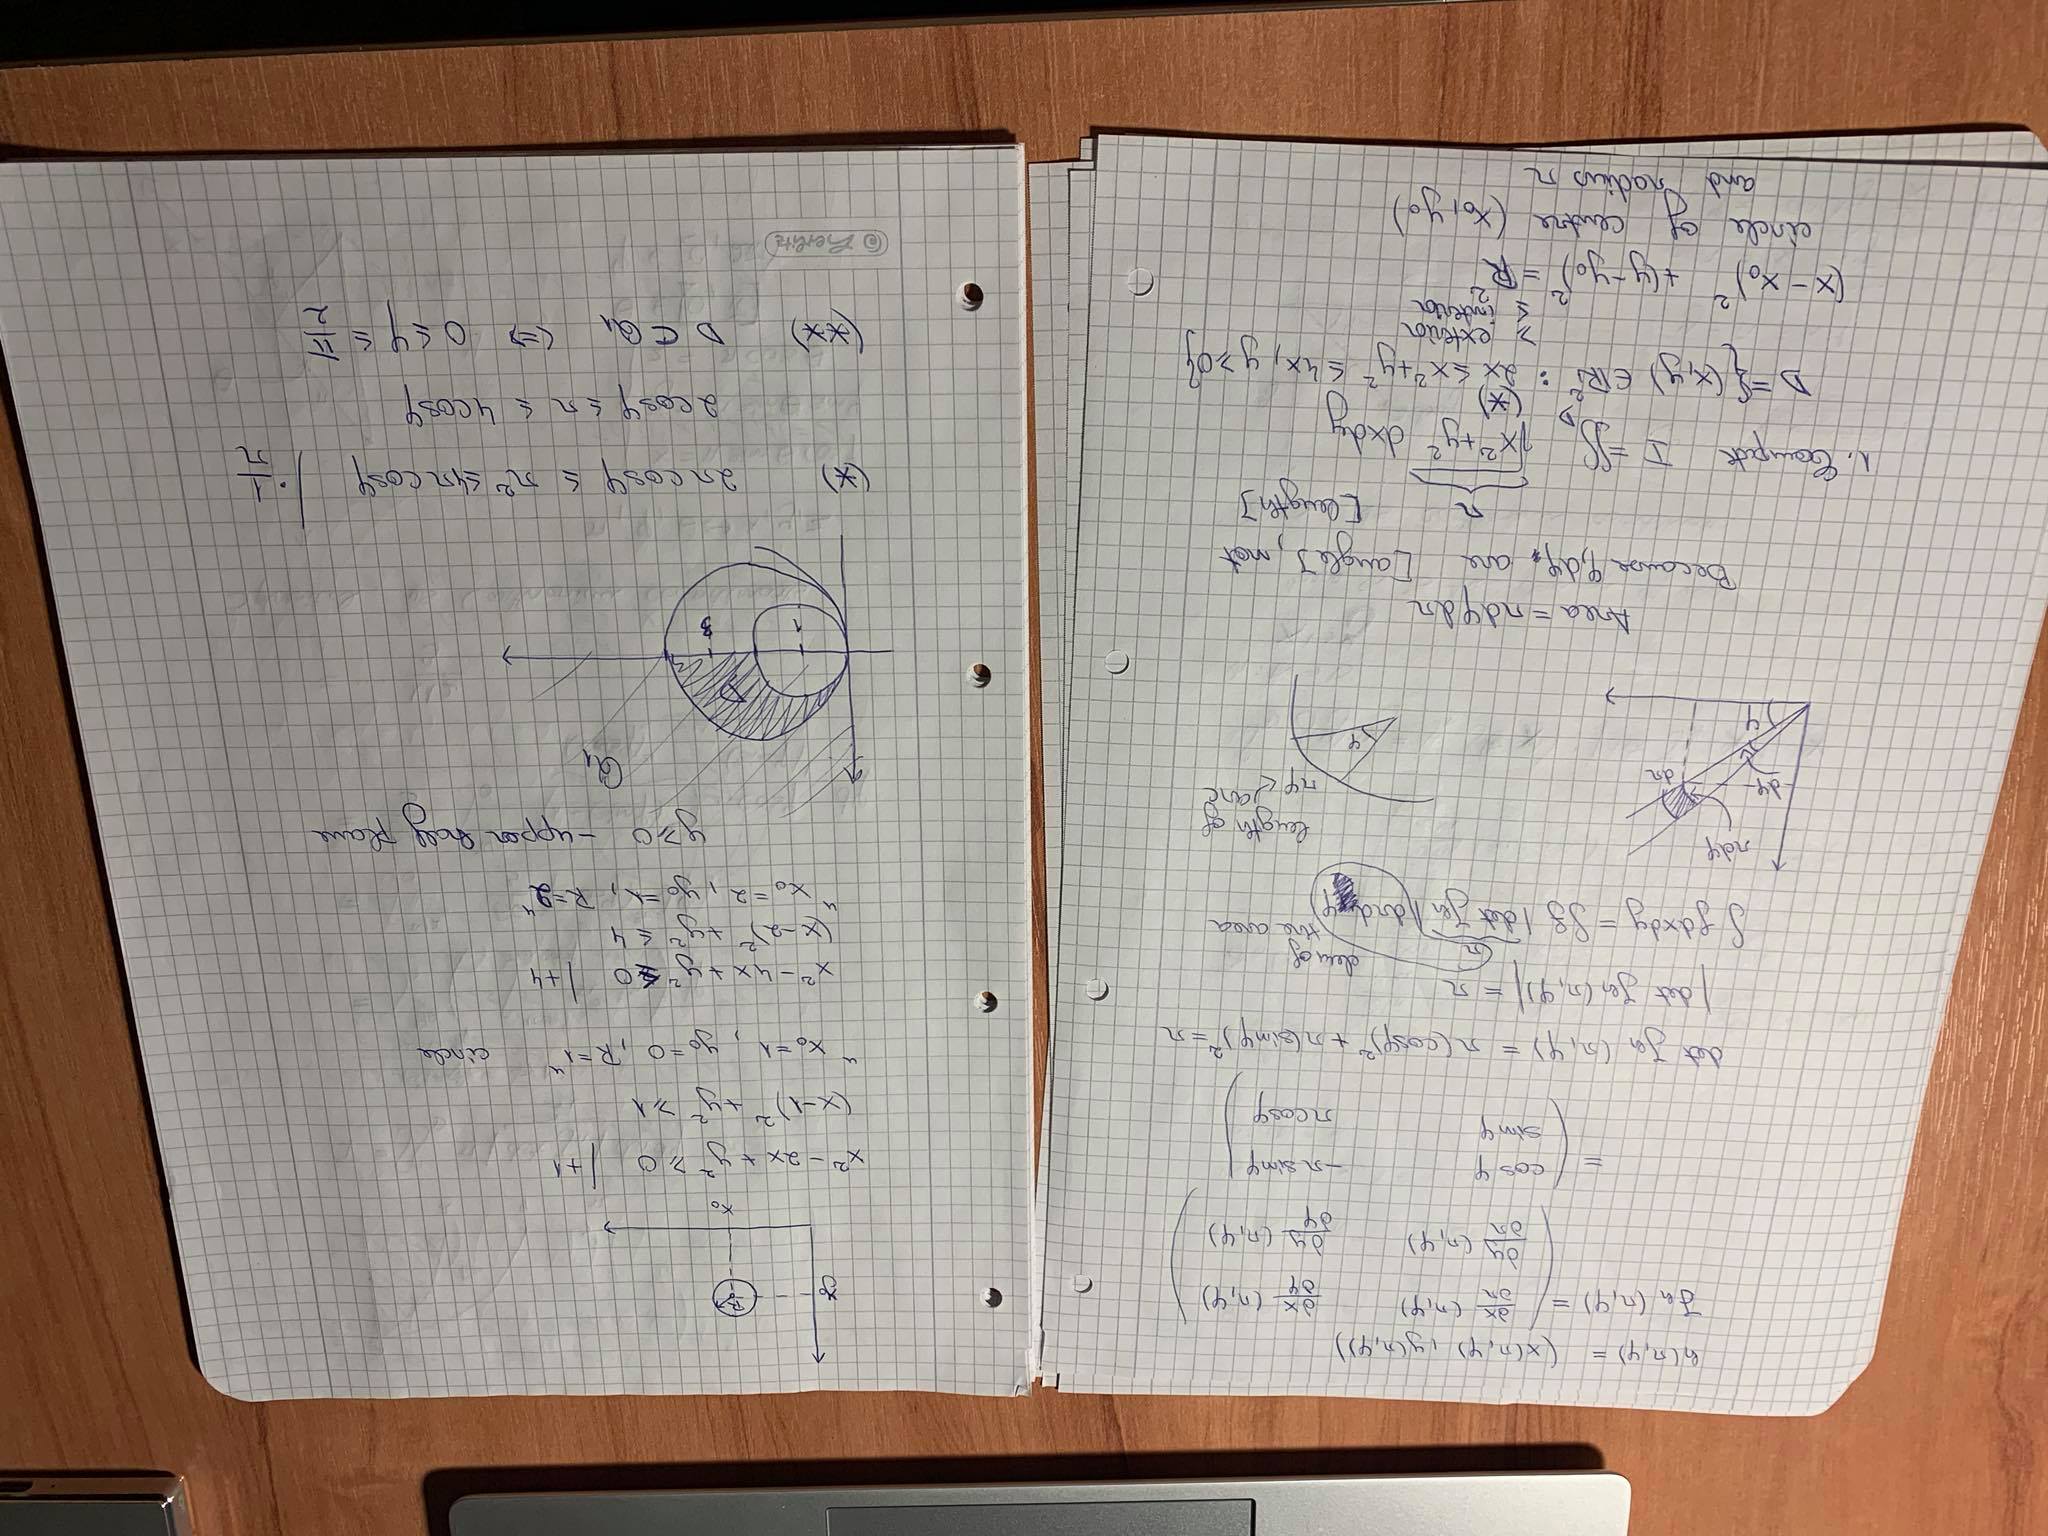 h(r,φ) = (x(r,φ), y(r,φ))
Jh (r,φ) = ( ∂x/∂r (r,φ) ∂x/∂φ (r,φ)
∂y/∂r (r,φ) ∂y/∂φ (r,φ) )
= ( cosφ -r sinφ
sinφ r cosφ )
det Jh (r,φ) = r(cosφ)² + r(sinφ)² = r
|det Jh (r,φ)| = r
r
elem of
the area
∫ f dxdy = ∫ f |det Jh| dr dφ
rdφ
dφ
dr
φ
length of
arc
rφ
φ
Area = r dφ dr
Because φ, dφ are [angle], not
[length]
r
1. Compute I = ∬D √x²+y² dxdy
(*)
D = {(x,y) ∈ ℝ² : 2x ≤ x²+y² ≤ 4x, y ≥ 0}
≥ exterior
≤ interior
(x-x₀)² + (y-y₀)² = R²
circle of centre (x₀,y₀)
and radius r
R
y₀
x₀
x² - 2x + y² ≥ 0 | +1
(x-1)² + y² ≥ 1
"x₀=1, y₀=0, R=1" circle
x² - 4x + y² ≤ 0 | +4
(x-2)² + y² ≤ 4
"x₀=2, y₀=1, R=2"
y ≥ 0 - upper half plane
Q₁
D
1 3
(*) 2r cosφ ≤ r² ≤ 4r cosφ | · 1/r
2cosφ ≤ r ≤ 4cosφ
(**) D ⊂ Q₁ ⇔ 0 ≤ φ ≤ π/2
Herlitz